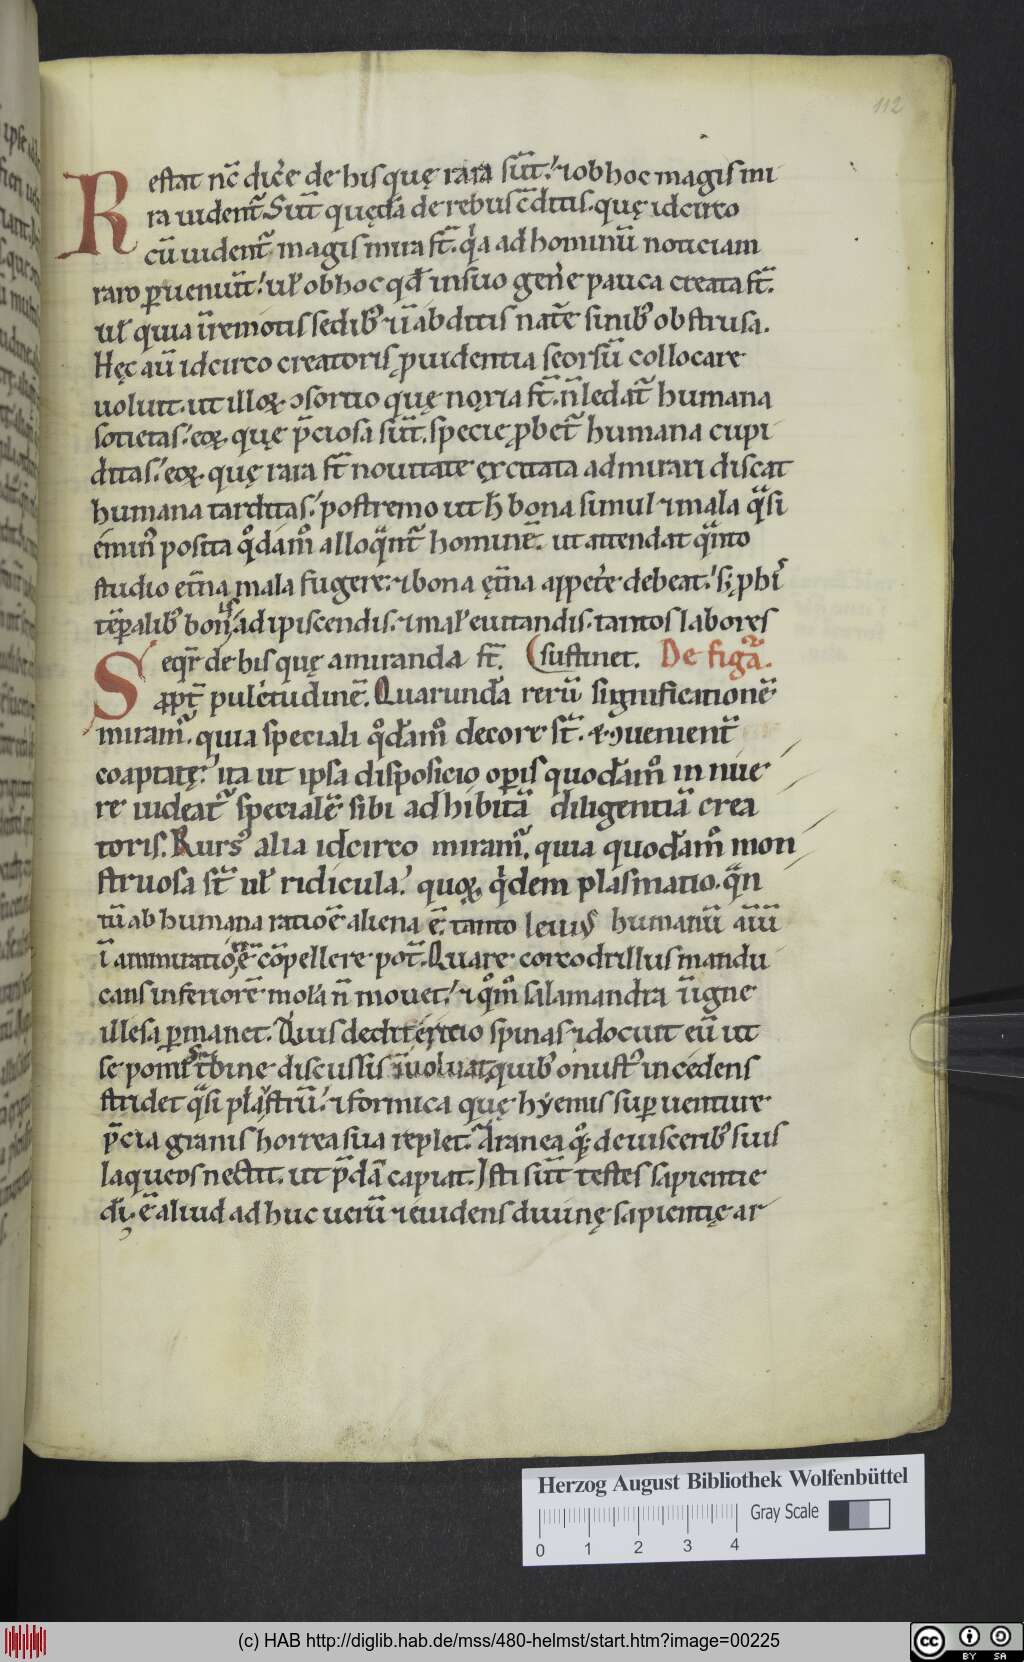 112
Restat nc̄ dic̓e de his quę rara sūt. ⁊ ob hoc magis mi
ra uident᷑. Sūt quędā de rebus c̄ditis. quę idcirco
cū uident᷑ magis mira st̄. qͥa ad hominū noticiam
raro ꝑueniūt. ul̓ ob hoc qd̄ in suo gen̓e pauca creata st̄.
ul̓ quia ī remotis sedibꝰ ⁊ ī abditis nat᷑e sinibꝰ obstrusa.
Hęc aū idcirco creatoris ꝓuidentia seorsū collocare
uoluit. ut illoꝝ ↄsortio quę noxia st̄. n̄ ledat᷑ humana
societas. eoꝝ quę p̄ciosa sūt. specie ꝓbet᷑ humana cupi
ditas. eoꝝ quę rara st̄ nouitate excitata admirari discat
humana tarditas. postremo ut h̄ bona simul ⁊ mala qͣsi
eminꝰ posita qͦdāmͦ alloqͣnt᷑ hominē. ut attendat qͣnto
studio et̄na mala fugere. ⁊ bona ęt̄na appet̓e debeat.
tēꝑalibꝰ bonis adipiscendis. ⁊ mal̓ euitandis. tantos labores
Seqr̄ de his quę amiranda st̄. sustinet. De figᷓra.
ꝓpt̄ pulc̓tudinē. Quarundā rerū significationē
miram᷑. quia speciali qͦdāmͦ decore st̄. ⁊ ↄuenient᷑
coaptatę. ita ut ipsa disposicio oꝑis quodāmͦ innue
re uideat᷑ specialē sibi adhibitā diligentiā crea
toris. Rursꝰ alia idcirco miram᷑. quia quodāmͦ mon
struosa st̄ ul̓ ridicula. quoꝝ qͥdem plasmatio. qͣn
tū ab humana ratioē aliena ē. tanto leuiꝰ humanū aīū
ī ammiratioēm cōpellere pot̄. Quare corcodrillus mandu
cans inferiorē molā n̄ mouet. ⁊ qͦmͦ salamandra ī igne
illesa ꝑmanet. Quis dedit ericio spinas ⁊ docuit eū ut
se pomis t̄bine discussis īuoluat. quibꝰ onustꝰ incedens
stridet qͣsi plaustrū. ⁊ formica quę hyemis suꝑuenture
p̄cia granis horrea sua replet. Aranea qͦꝫ de uisceribꝰ suis
laqueos nectit. ut p̄dā capiat. Isti sūt testes sapientie
dī. ē aliud adhuc uerū ⁊ euidens diuinę sapientię ar
Herzog August Bibliothek Wolfenbüttel
Gray Scale
0 1 2 3 4
(c) HAB http://diglib.hab.de/mss/480-helmst/start.htm?image=00225
cc BY SA